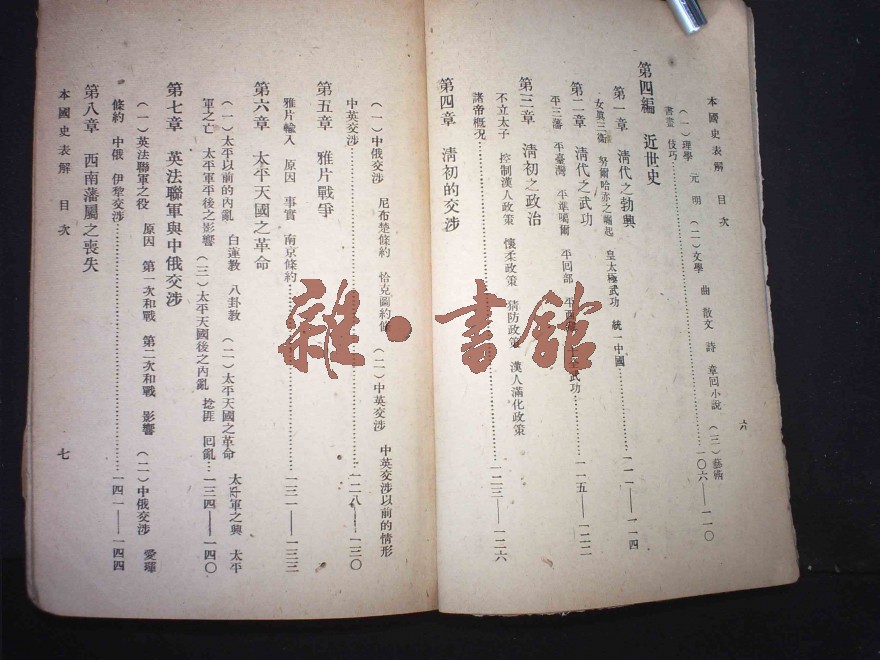 本國史表解 目次
六
（一）理學 元 明 （二）文學 曲 散文 詩 章回小說 （三）藝術
書畫 伎巧……一〇六——一一〇
第四編 近世史
第一章 清代之勃興
女眞三衞 努爾哈赤之崛起 皇太極武功 統一中國……一一一——一一四
第二章 清代之武功
平三藩 平臺灣 平準噶爾 平回部 武功……一一五——一二二
第三章 清初之政治
不立太子 控制漢人政策 懷柔政策 猜防政策 漢人滿化政策
諸帝概况……一二三——一二六
第四章 清初的交涉
（一）中俄交涉 尼布楚條約 恰克圖約 （二）中英交涉 中英交涉以前的情形
中英交涉……一二八——一三〇
第五章 雅片戰爭
雅片輸入 原因 事實 南京條約……一三一——一三三
第六章 太平天國之革命
（一）太平以前的內亂 白蓮教 八卦教 （二）太平天國之革命 太平軍之興 太平
軍之亡 太平軍平後之影響 （三）太平天國後之內亂 捻匪 回亂…一三四——一四〇
第七章 英法聯軍與中俄交涉
（一）英法聯軍之役 原因 第一次和戰 第二次和戰 影響 （二）中俄交涉 愛琿
條約 中俄 伊犂交涉……一四一——一四四
第八章 西南藩屬之喪失
本國史表解 目次
七
雜·書館